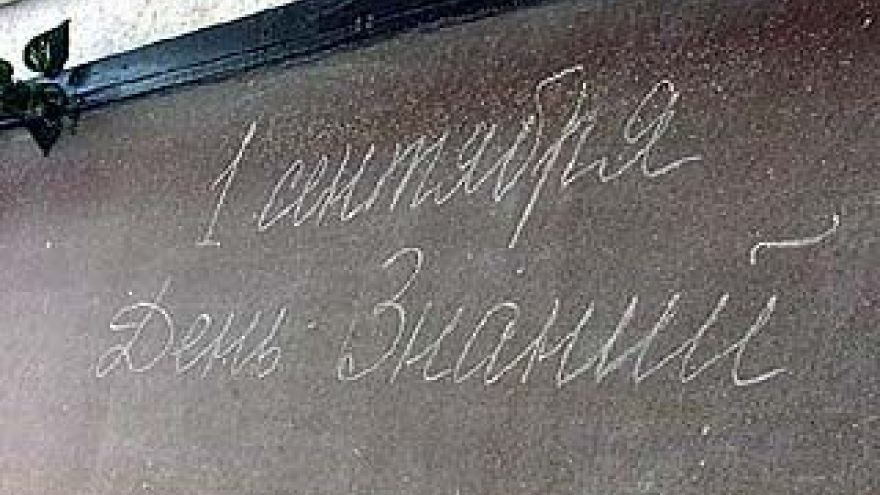 1 сентября
День Знаний